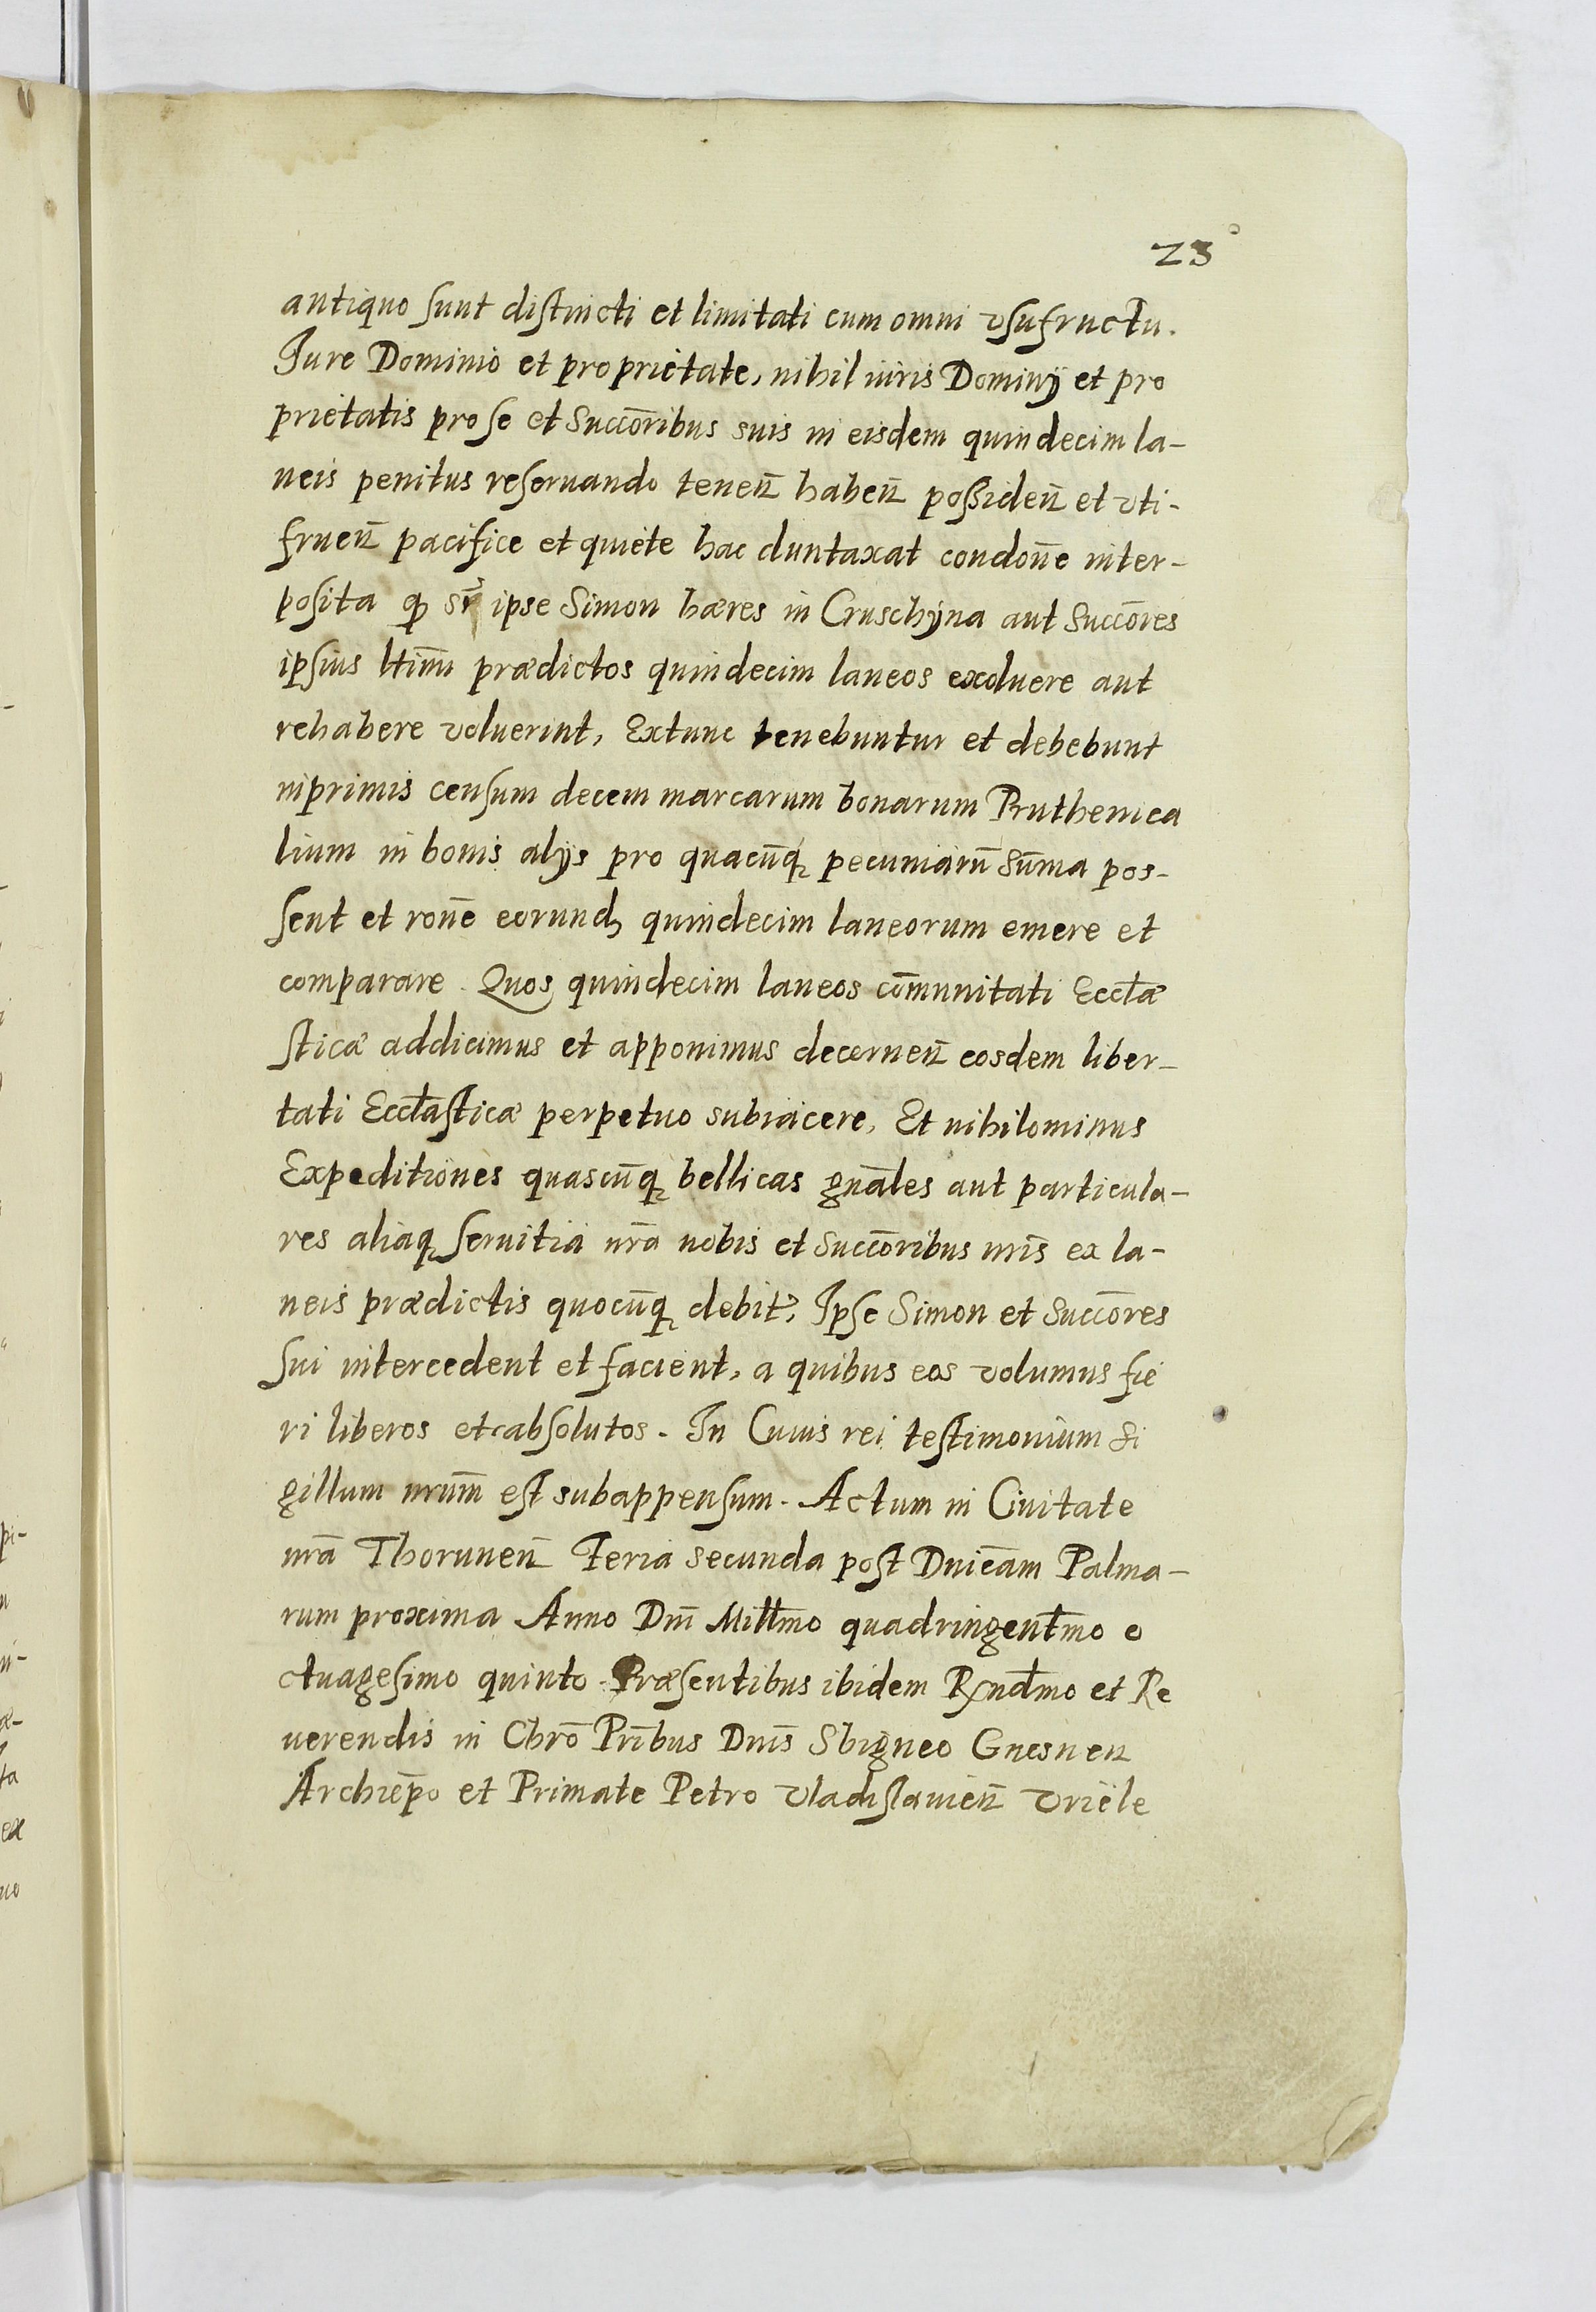 23
antiquo sunt distincti et limitati cum omni vsufructu.
Jure Dominio et proprietate, nihil iuris Dominij et pro
prietatis pro se et Succōribus suis in eisdem quindecim la-
neis penitus reseruando tenen̄ haben̄ possiden̄ et vti-
fruen̄ pacifice et quiete hac duntaxat condōne inter-
posita ꝙ ipse Simon hæres in Cruschÿna aut Succōres
ipsius ltimi prædictos quindecim laneos exoluere aut
rehabere voluerint, Extunc tenebuntur et debebunt
inprimis censum decem marcarum bonarum Pruthenica
lium in bonis alijs pro quacūq; pecuniarū Sūma pos-
sent et rone eorund; quindecim laneorum emere et
comparare. Quos quindecim laneos cōmunitati Eccłæ
sticæ addicimus et apponimus decernen̄ eosdem liber-
tati Eccłasticæ perpetuo subiacere, Et nihilominus
Expeditiones quascūq; bellicas gnāles aut particula-
res aliaq; seruitia nrā nobis et Succōribus nrīs ex la-
neis prædictis quocūq; debit̉, Ipse Simon et Succōres
sui intercedent et facient, a quibus eos volumus fie
ri liberos et absolutos. In Cuius rei testimonium Si
gillum nrum̄ est subappensum. Actum in Ciuitate
nrā Thorunen̄ Feria secunda post Dnicām Palma-
rum proxima Anno Dnī Miłłmo quadringentmo o
ctuagesimo quinto. Præsentibus ibidem Rxndmo et Re
uerendis in Chrō Prībus Dnīs Sbigneo Gnesnen
Archiepo et Primate Petro Vladislauien̄ Vriele